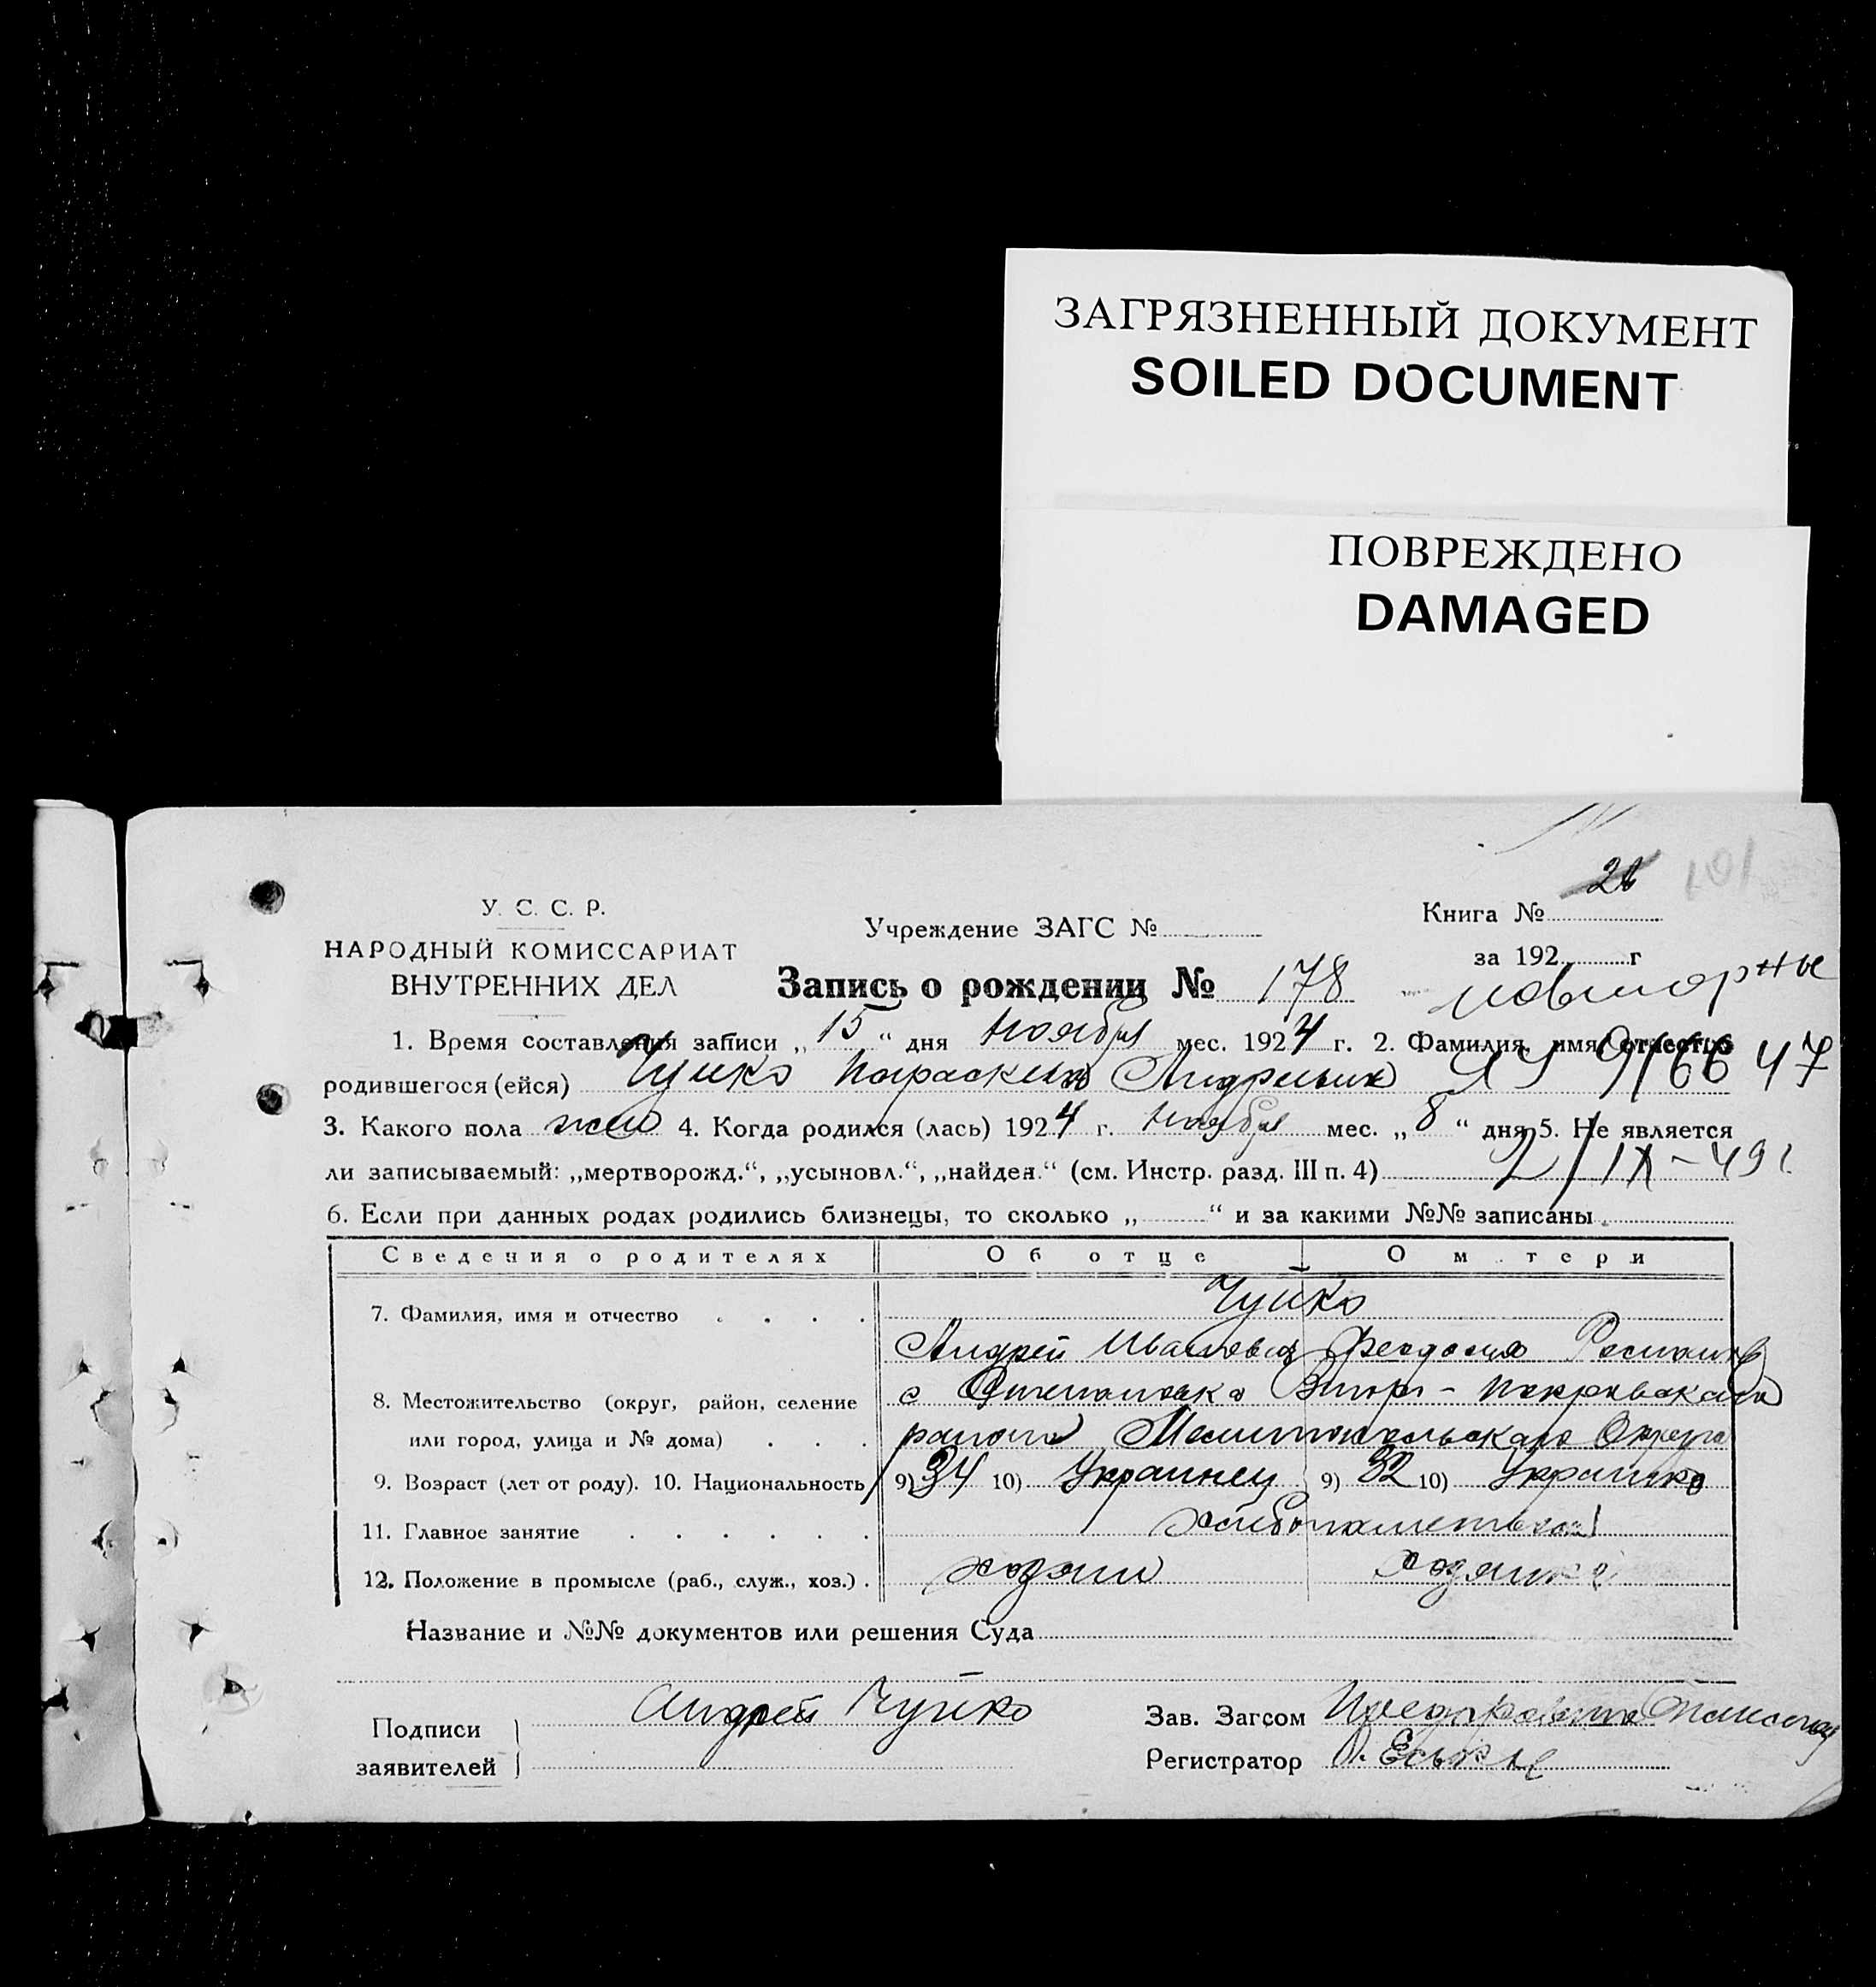 ЗАГРЯЗНЕННЫЙ ДОКУМЕНТ
SOILED DOCUMENT
ПОВРЕЖДЕНО
DAMAGED
У. С. С. Р.
НАРОДНЫЙ КОМИССАРИАТ
ВНУТРЕННИХ ДЕЛ
Учреждение ЗАГС №
Книга №
за 192 г
Запись о рождении № 178
повторные
1. Время составления записи „ 15 “ дня ноября мес. 1924 г. 2. Фамилия, имя отчество
родившегося (ейся) Чуйко Параскева Андреевна
3. Какого пола жен 4. Когда родился (лась) 1924 г. ноября мес. „ 8 “ дня 5. Не является
ли записываемый: „мертворожд.“, „усыновл.“, „найден.“ (см. Инстр. разд. III п. 4) 2/IX-49 г.
6. Если при данных родах родились близнецы, то сколько „ “ и за какими №№ записаны
Сведения о родителях Об отце О м тери
7. Фамилия, имя и отчество Чуйко
Андрей Иванович Феодосия
8. Местожительство (округ, район, селение
или город, улица и № дома) района Мелитопольскаго Округа
9. Возраст (лет от роду). 10. Национальность 9) 34 10) Украинец 9) 32 10) Украинка
11. Главное занятие
12. Положение в промысле (раб., служ., хоз.) хозяин хозяйка
Название и №№ документов или решения Суда
Подписи
заявителей
Андрей Чуйко
Зав. Загсом
Регистратор